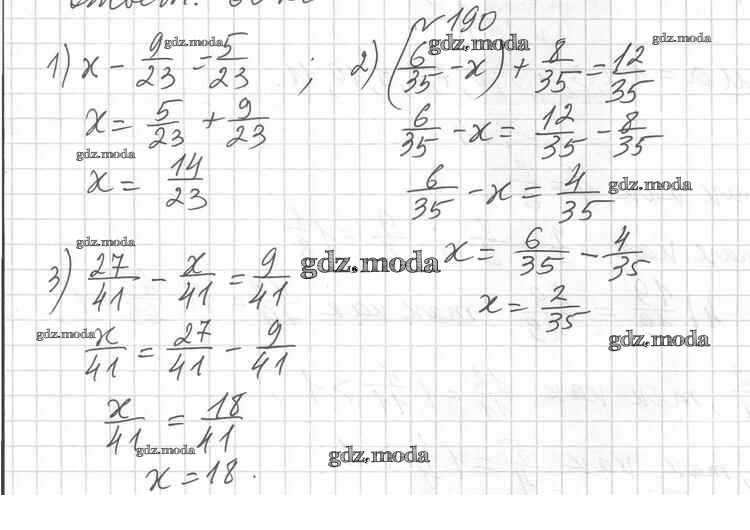 № 190
1) x - 9/23 = 5/23 ;
x = 5/23 + 9/23
x = 14/23
2) (6/35 - x) + 8/35 = 12/35
6/35 - x = 12/35 - 8/35
6/35 - x = 4/35
x = 6/35 - 4/35
x = 2/35
3) 27/41 - x/41 = 9/41
x/41 = 27/41 - 9/41
x/41 = 18/41
x = 18.
gdz.moda
gdz.moda
gdz.moda
gdz.moda
gdz.moda
gdz.moda
gdz.moda
gdz.moda
gdz.moda
gdz.moda
gdz.moda